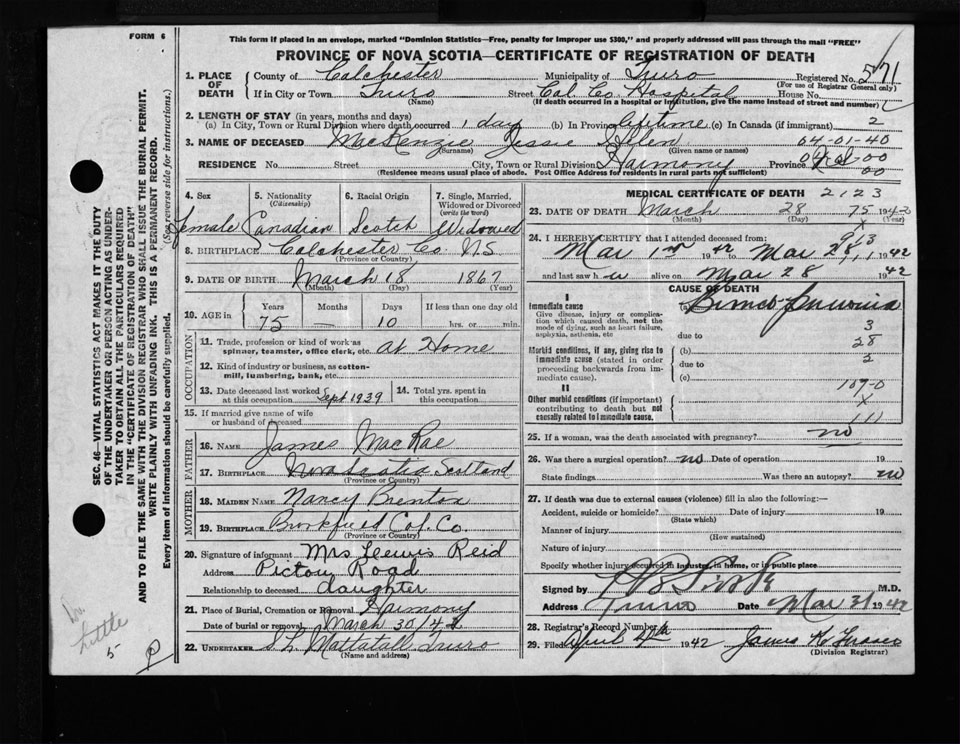 FORM 6
This form if placed in an envelope, marked "Dominion Statistics—Free, penalty for improper use $300," and properly addressed will pass through the mail "FREE"
PROVINCE OF NOVA SCOTIA—CERTIFICATE OF REGISTRATION OF DEATH
1. PLACE OF DEATH
County of Colchester Municipality of Truro Registered No. 571
(For use of Registrar General only)
If in City or Town Truro Street Col. Co. Hospital House No.
(Name) (If death occurred in a hospital or institution, give the name instead of street and number)
2. LENGTH OF STAY (in years, months and days)
(a) In City, Town or Rural Division where death occurred 1 day (b) In Province lifetime (c) In Canada (if immigrant) 2
3. NAME OF DECEASED MacKenzie Jessie Allen 04-01-40
(Surname) (Given name or names)
RESIDENCE No. Street City, Town or Rural Division Harmony Province
(Residence means usual place of abode. Post Office Address for residents in rural parts not sufficient)
4. Sex 5. Nationality (Citizenship) 6. Racial Origin 7. Single, Married, Widowed or Divorced (write the word)
Female Canadian Scotch Widowed
8. BIRTHPLACE Colchester Co. N.S
(Province or Country)
9. DATE OF BIRTH March 18 1867
(Month) (Day) (Year)
10. AGE in Years Months Days If less than one day old
75 — 10 hrs. or min.
OCCUPATION
11. Trade, profession or kind of work as spinner, teamster, office clerk, etc. at Home
12. Kind of industry or business, as cotton-mill, lumbering, bank, etc.
13. Date deceased last worked at this occupation Sept 1939 14. Total yrs. spent in this occupation
15. If married give name of wife or husband of deceased
FATHER
16. NAME James MacRae
17. BIRTHPLACE Nova Scotia Scotland
(Province or Country)
MOTHER
18. MAIDEN NAME Nancy Brenton
19. BIRTHPLACE Col. Co.
(Province or Country)
20. Signature of informant Mrs Lewis Reid
Address Pictou Road
Relationship to deceased daughter
21. Place of Burial, Cremation or Removal Harmony
Date of burial or removal March 30/42
22. UNDERTAKER S L Mattatall Truro
(Name and address)
MEDICAL CERTIFICATE OF DEATH 2123
23. DATE OF DEATH March 28 75 1942
(Month) (Day) (Year)
24. I HEREBY CERTIFY that I attended deceased from:
Mar 1st 1942 to Mar 28 1942
and last saw h alive on Mar 28 1942
CAUSE OF DEATH
I
Immediate cause
Give disease, injury or complication which caused death, not the mode of dying, such as heart failure, asphyxia, asthenia, etc
(a)
3
due to 28
Morbid conditions, if any, giving rise to immediate cause (stated in order proceeding backwards from immediate cause).
(b) 2
due to
(c) 107-0
II
Other morbid conditions (if important) contributing to death but not causally related to immediate cause.
X
111
25. If a woman, was the death associated with pregnancy? no
26. Was there a surgical operation? no Date of operation 19
State findings Was there an autopsy? no
27. If death was due to external causes (violence) fill in also the following:—
Accident, suicide or homicide? Date of injury 19
(State which)
Manner of injury
(How sustained)
Nature of injury
Specify whether injury occurred in industry, in home, or in public place
Signed by M.D.
Address Truro Date Mar 31 1942
28. Registrar's Record Number
29. Filed April 4th 1942 James K Fraser
(Division Registrar)
SEC. 46—VITAL STATISTICS ACT MAKES IT THE DUTY
OF THE UNDERTAKER OR PERSON ACTING AS UNDERTAKER TO OBTAIN ALL THE PARTICULARS REQUIRED
IN THE "CERTIFICATE OF REGISTRATION OF DEATH"
AND TO FILE THE SAME WITH THE DIVISION REGISTRAR WHO SHALL ISSUE THE BURIAL PERMIT.
WRITE PLAINLY WITH UNFADING INK. THIS IS A PERMANENT RECORD.
Every item of information should be carefully supplied. (See reverse side for instructions.)
Little
5